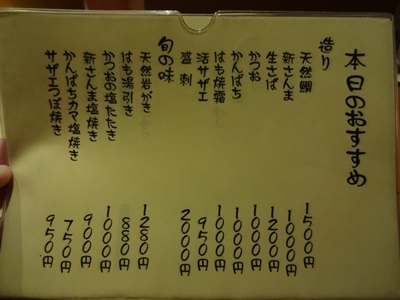 本日のおすすめ
造り
天然鯛 1500円
新さんま 1000円
生さば 1200円
かつお 1000円
かんぱち 1000円
はも焼霜 1000円
活サザエ 950円
盛刺 2000円
旬の味
天然岩がき 1280円
はも湯引き 880円
かつおの塩たたき 1000円
新さんま塩焼き 900円
かんぱちカマ塩焼き 750円
サザエつぼ焼き 950円